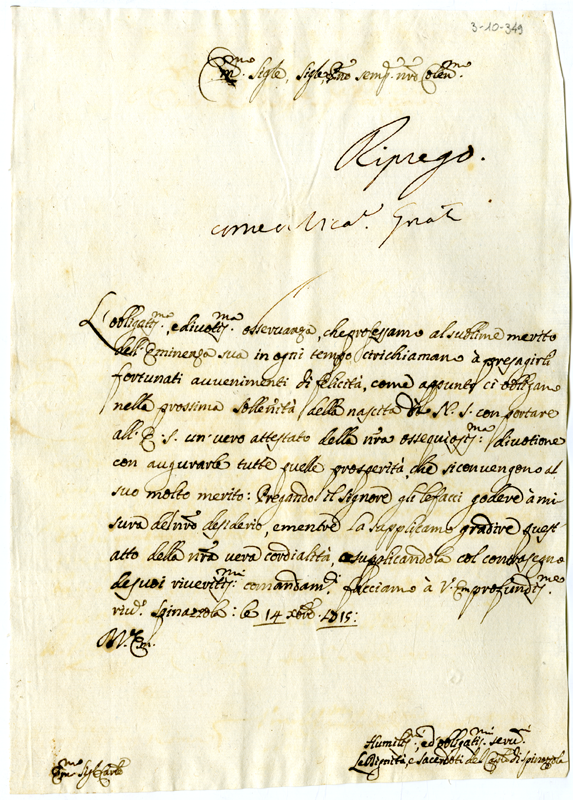 3-10-349
Em.mo Sig.re, Sig.re, e Pno semp. nro Colen.mo
Riprego.
come
L'obligatis.ma, e divotis.ma osservanza, che professamo al sublime merito
dell'Eminenza sua in ogni tempo ci richiamano à presagirli
fortunati auvenimenti di felicità, come appunto ci obligano
nella prossima sollenità della nascita di N. S. con portare
all'E. S. un vero attestato della nra ossequiosis.ma divotione
con augurarle tutte quelle prosperità, che si convengono al
suo molto merito: Pregando il Signore gli le facci godere à mi
sura del nro desiderio, e mentre la supplicamo gradire quest'
atto della nra vera cordialità, supplicandola col contrasegno
de suoi riveritis.mi comandam.ti facciamo à V. Em. profundis.me
riv.e Spinazzola: li 14 Xbre 1715:
Di V. Em.
Humilis.mi, ed obligatis.mi serv.i
Le Dignità, e Sacerdoti del Cap.lo di Spinazzola
Em.mo Sig. Card.